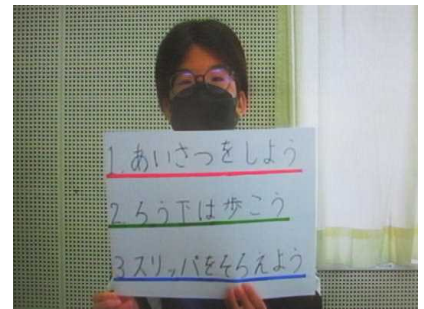 1.あいさつをしよう
2.ろう下は歩こう
3.スリッパをそろえよう